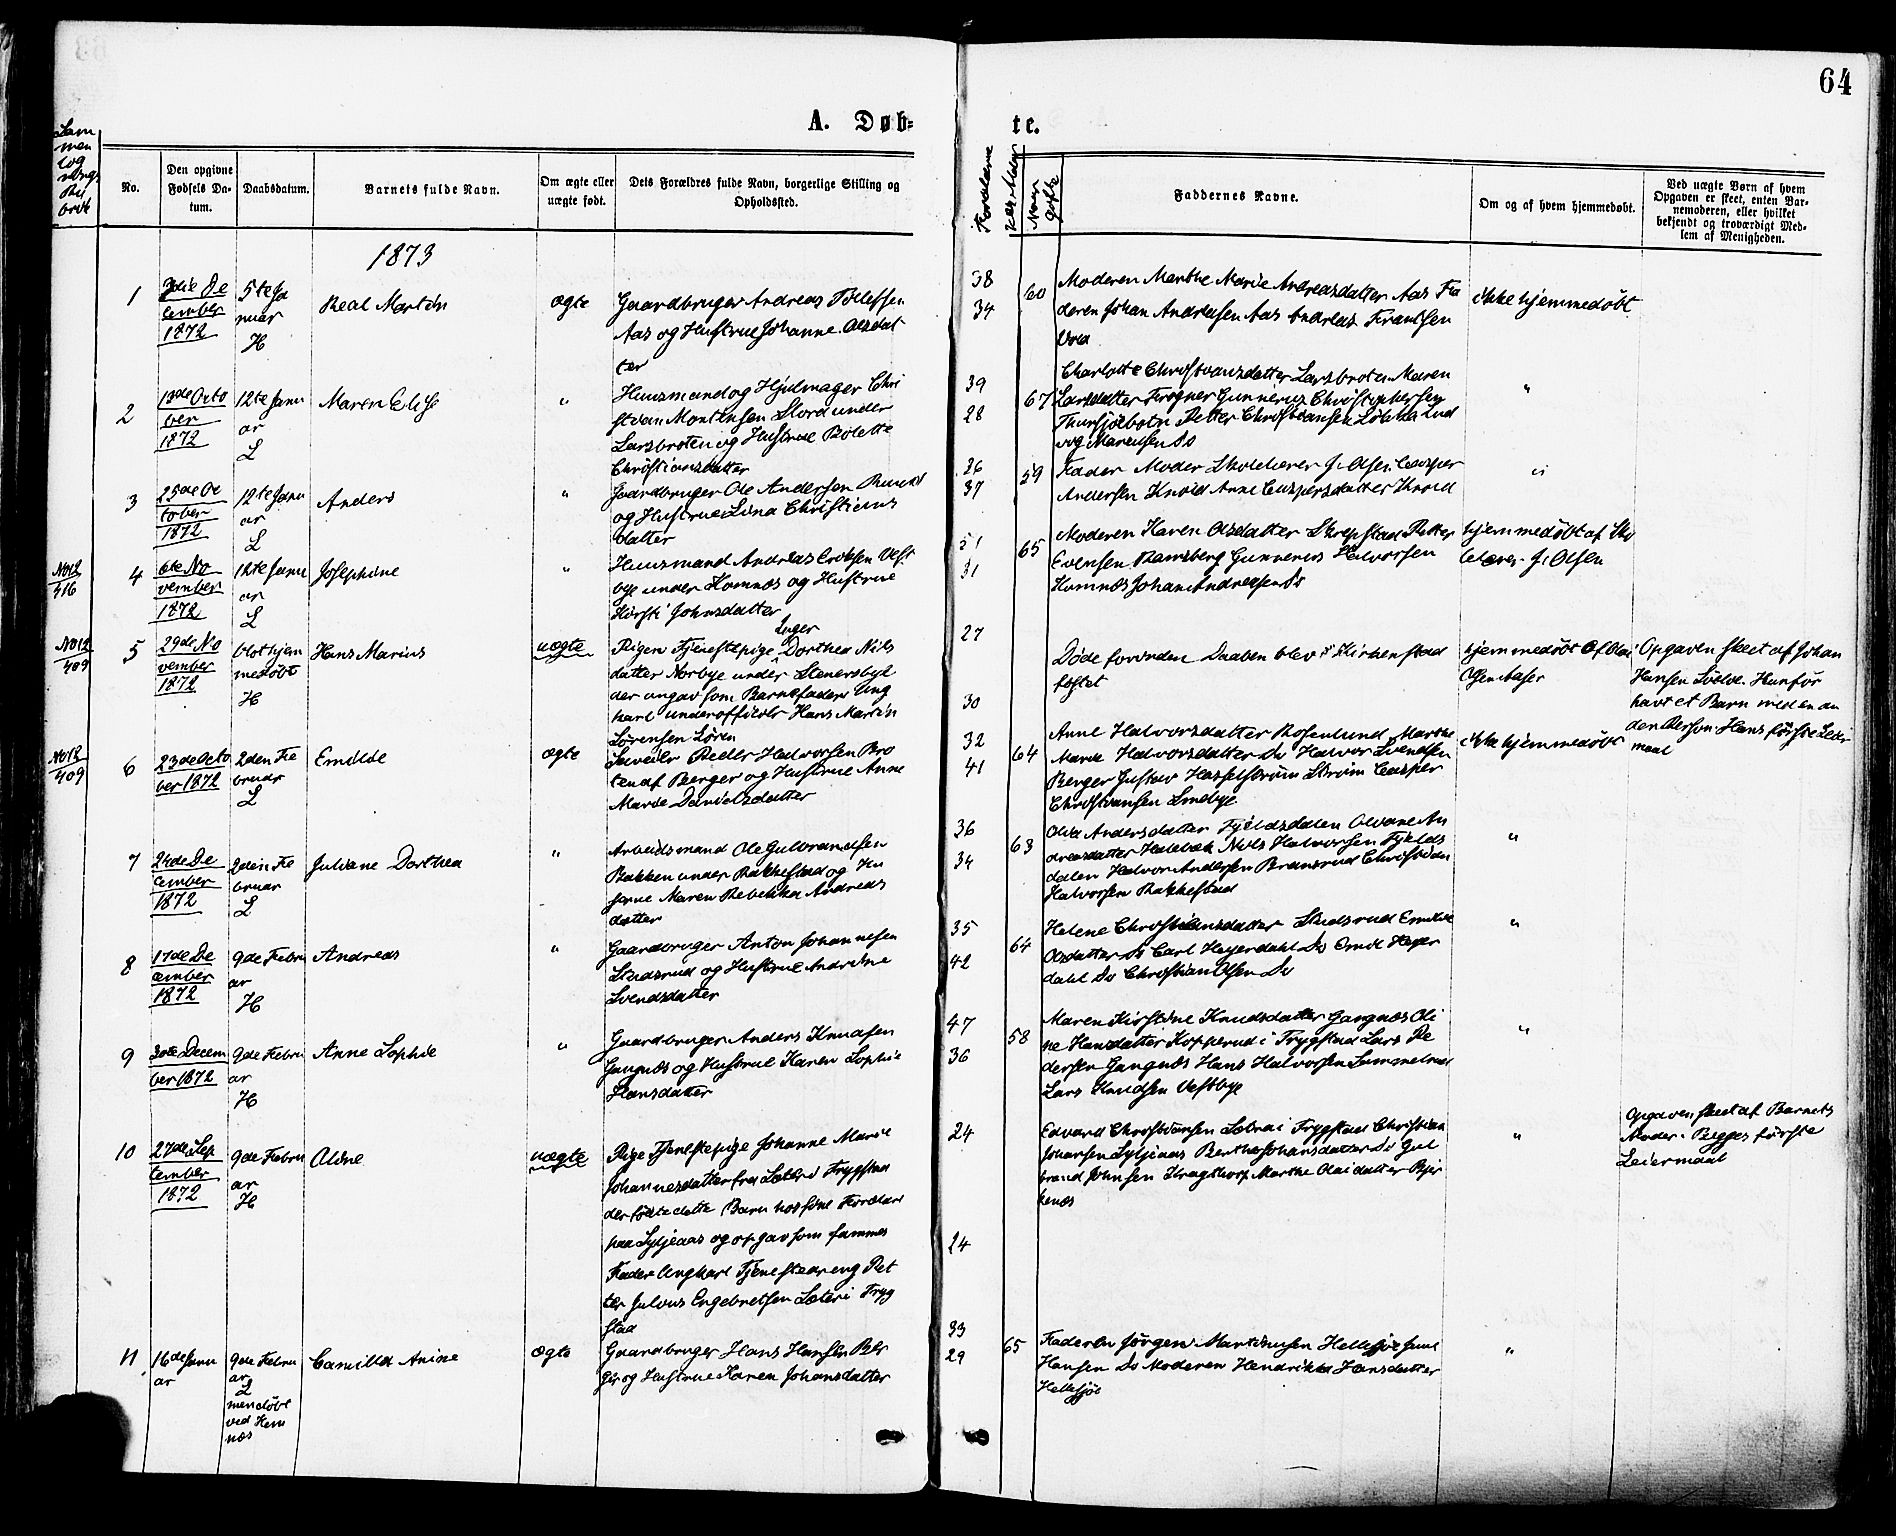 64
A. Døb-
te.
No.
Den opgivne Fødsels Da-tum.
Daabsdatum.
Barnets fulde Navn.
Om ægte eller uægte født.
Dets Forældres fulde Navn, borgerlige Stilling og Opholdssted.
Faddernes Navne.
Om og af hvem hjemmedøbt.
Ved uægte Børn af hvem Opgaven er skeet, enten Bar-nemoderen, eller hvilket bekjendt og troværdigt Med-lem af Menigheden.
1873
1
December
1872
5te Ja
nuar
H
Martin
ægte
Gaardbruger Andreas
Aas og Hustrue Johanne Olsdat
ter
38
34
60
Moderen Marthe Marie Andreasdatter Aas Fa
deren Johan Andreasen Aas Andreas Frantsen
ikke hjemmedøbt
2
Octo
ber
1872
12te Janu
ar
L
Maren Elise
"
Huusmand og Hjulmager Chri
stian Mortensen Stord under
Larsbroten og Hustrue Bolette
Christiansdatter
39
28
67
Charlotte Christiansdatter Larsbroten Maren
Larsdatter Gunnerius Christophersen
Petter Christiansen Lud
vig Marensen Do
"
3
25de Oc
tober
1872
12te Janu
ar
L
Anders
"
Gaardbruger Ole Andersen
og Hustrue Lina Christians
datter
36
37
59
Fader Moder Skolelærer J. Olsen Casper
Andersen Knold Anne Caspersdatter Knold
"
No 12
4
6te No
vember
1872
12te Janu
ar
L
Josephine
"
Huusmand Andreas Eriksen Vest
bye under Komnæs og Hustrue
Kirsti Johnsdatter
51
31
65
Moderen Karen Olsdatter Skrepstad Petter
Evensen Ramsberg Gunnerius Halvorsen
Komnæs Johan Andreasen Do
hjemmedøbt af Sko
lelærer J. Olsen
No 12
409
5
29de No
vember
1872
blot hjem
medøbt
H
Hans Marius
uægte
Pigen Tjenestepige Dorthea Nils
datter Norbye under Stenersbye
der angav som Barnefader Ung
karl underofficier Hans Martin
Sørensen Løren
27
30
Døde forinden Daaben blev i Kirken stad
fæstet
hjemmedøbt af
Opgaven skeet af Johan
Hansen Hun før
havt et Barn med en an
den Person Hans første Leier
maal
No 12
409
6
23de Octo
ber 1872
2den Fe
bruar
L
Emilie
ægte
Peder Halvorsen Bro
ten af Berger og Hustrue Anne
Marie Danielsdatter
32
41
64
Anne Halvorsdatter Rosenlund Marthe
Marie Halvorsdatter Do Halvor Svendsen
Berger Gustav Hasselstrøm Strøm Casper
Christiansen Smebye
ikke hjemmedøbt
7
24de De
cember
1872
2den Fe
bruar
L
Juliane Dorthea
"
Arbeidsmand Ole Gulbrandsen
Bakken under Bakkestad og Hu
strue Maren Rebekka Andreas
datter
36
34
63
Andersdatter Fjeldsdalen Oliane An
dreasdatter Holebæk Nils Halvorsen Fjelds
dalen Halvor Andersen Brensrud Christian
Halvorsen Bakkestad
"
8
17de De
cember
1872
9de Febru
ar
H
Andreas
"
Gaardbruger Anton Johannesen
Stidsrud og Hustrue Andrine
Svendsdatter
35
42
64
Helene Christiansdatter Stidsrud Emilie
Olsdatter Do Carl Heyerdahl Do Emil Heyer
dahl Do Christian Olsen Do
"
9
Decem
ber 1872
9de Febru
ar
H
Anne Sophie
"
Gaardbruger Anders Knudsen
Gangnæs og Hustrue Karen Sophie
Hansdatter
47
36
58
Maren Kirstine Knudsdatter Gangnæs Oli
ne Hansdatter Kopperud i Trygstad Lars Pe
dersen Gangnæs Hans Halvorsen
Lars Knudsen Vestbye
"
10
27de Sep
tember
1872
9de Febru
ar
H
Aline
uægte
Pige Tjenestepige Johanne Marie
Johannesdatter fra Sæter i Trygstad
der fødte dette Barn hos sine Forældre
paa Syljeaas og opgav som sammes
Fader Ungkarl Tjenestedreng Pet
ter Julius Engebretsen Sæter i Tryg
stad
24
24
Edvard Christiansen Sæter i Trygstad Christian
Johansen Syljeaas Berthe Johansdatter Do Gul
brand Johnsen Kragtorp Marthe Olaidatter Bjer
kenæs
"
Opgaven skeet af Barnets
Moder. Begges første
Leiermaal
11
16de Janu
ar
9de Febru
ar
L
men døbt
ved Hem
næs
Camilla Anine
ægte
Gaardbruger Hans Hansen Ber
ger og Hustrue Karen Johansdatter
33
29
65
Faderen Jørgen Martinusen Hellesjøe
Hansen Do Moderen Hendrikka Hansdatter
Hellesjøe
"